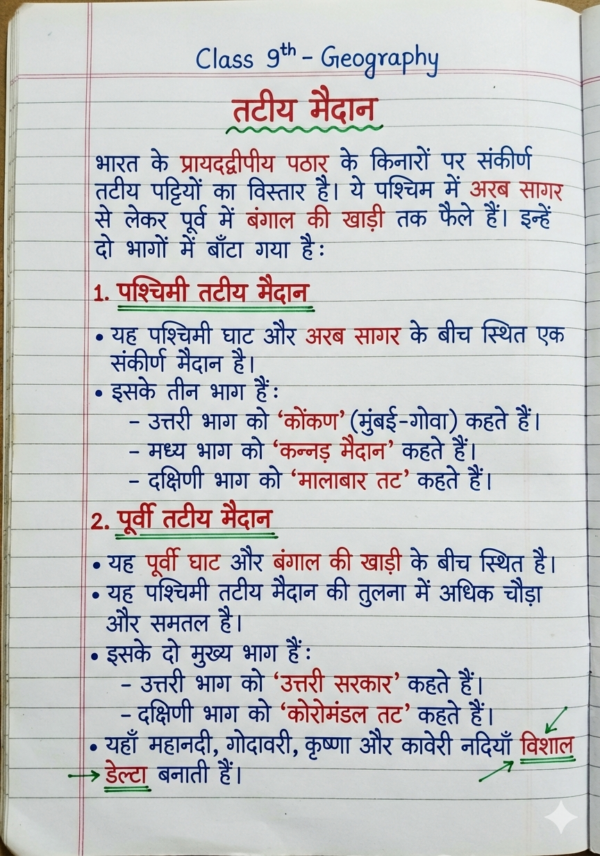 Class 9th - Geography
तटीय मैदान
भारत के प्रायदद्वीपीय पठार के किनारों पर संकीर्ण
तटीय पट्टियों का विस्तार है। ये पश्चिम में अरब सागर
से लेकर पूर्व में बंगाल की खाड़ी तक फैले हैं। इन्हें
दो भागों में बाँटा गया है:
1. पश्चिमी तटीय मैदान
• यह पश्चिमी घाट और अरब सागर के बीच स्थित एक
संकीर्ण मैदान है।
• इसके तीन भाग हैं:
- उत्तरी भाग को 'कोंकण' (मुंबई-गोवा) कहते हैं।
- मध्य भाग को 'कन्नड़ मैदान' कहते हैं।
- दक्षिणी भाग को 'मालाबार तट' कहते हैं।
2. पूर्वी तटीय मैदान
• यह पूर्वी घाट और बंगाल की खाड़ी के बीच स्थित है।
• यह पश्चिमी तटीय मैदान की तुलना में अधिक चौड़ा
और समतल है।
• इसके दो मुख्य भाग हैं:
- उत्तरी भाग को 'उत्तरी सरकार' कहते हैं।
- दक्षिणी भाग को 'कोरोमंडल तट' कहते हैं।
• यहाँ महानदी, गोदावरी, कृष्णा और कावेरी नदियाँ विशाल
→ डेल्टा बनाती हैं।